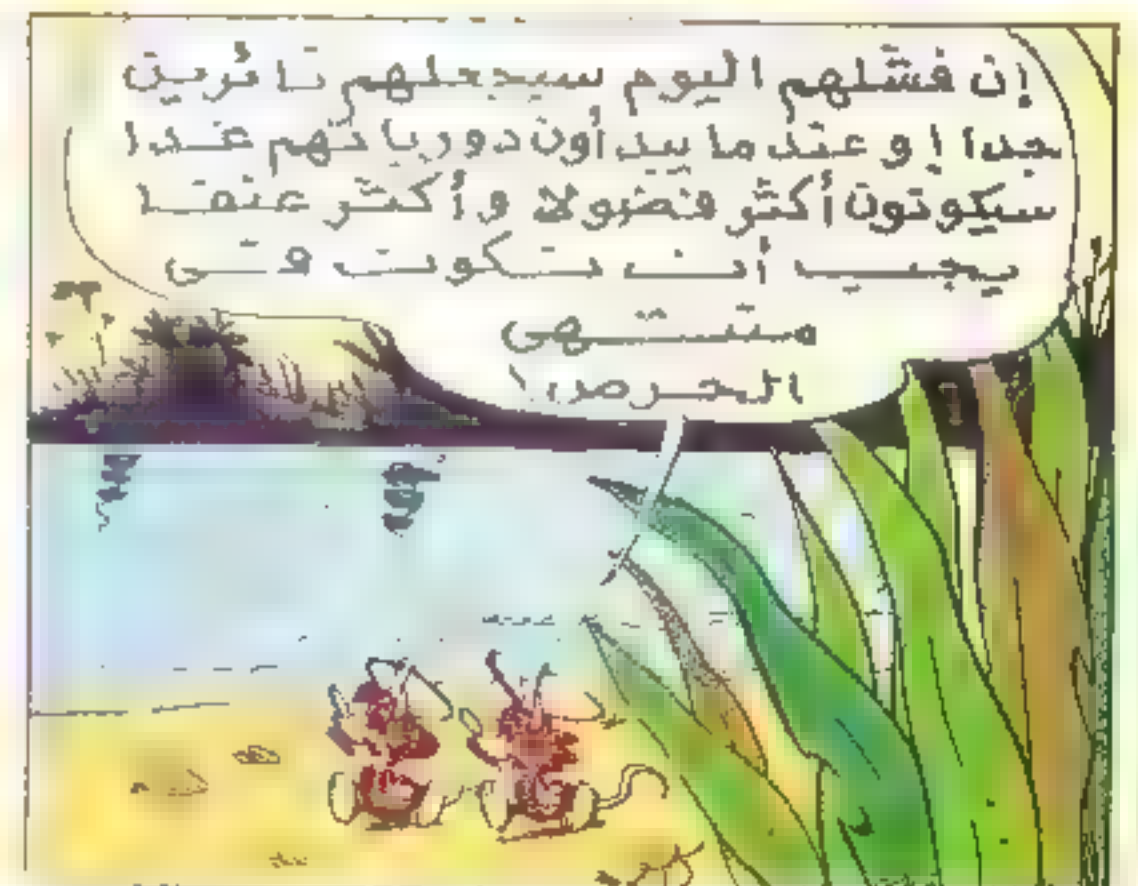 إن فشلهم اليوم سيجعلهم ثائرين
جدا ! و عندما يبدأون دورياتهم غدا
سيكونون أكثر فضولا و أكثر عنفا
يجب أن نكون في
منتهى
الحرص !